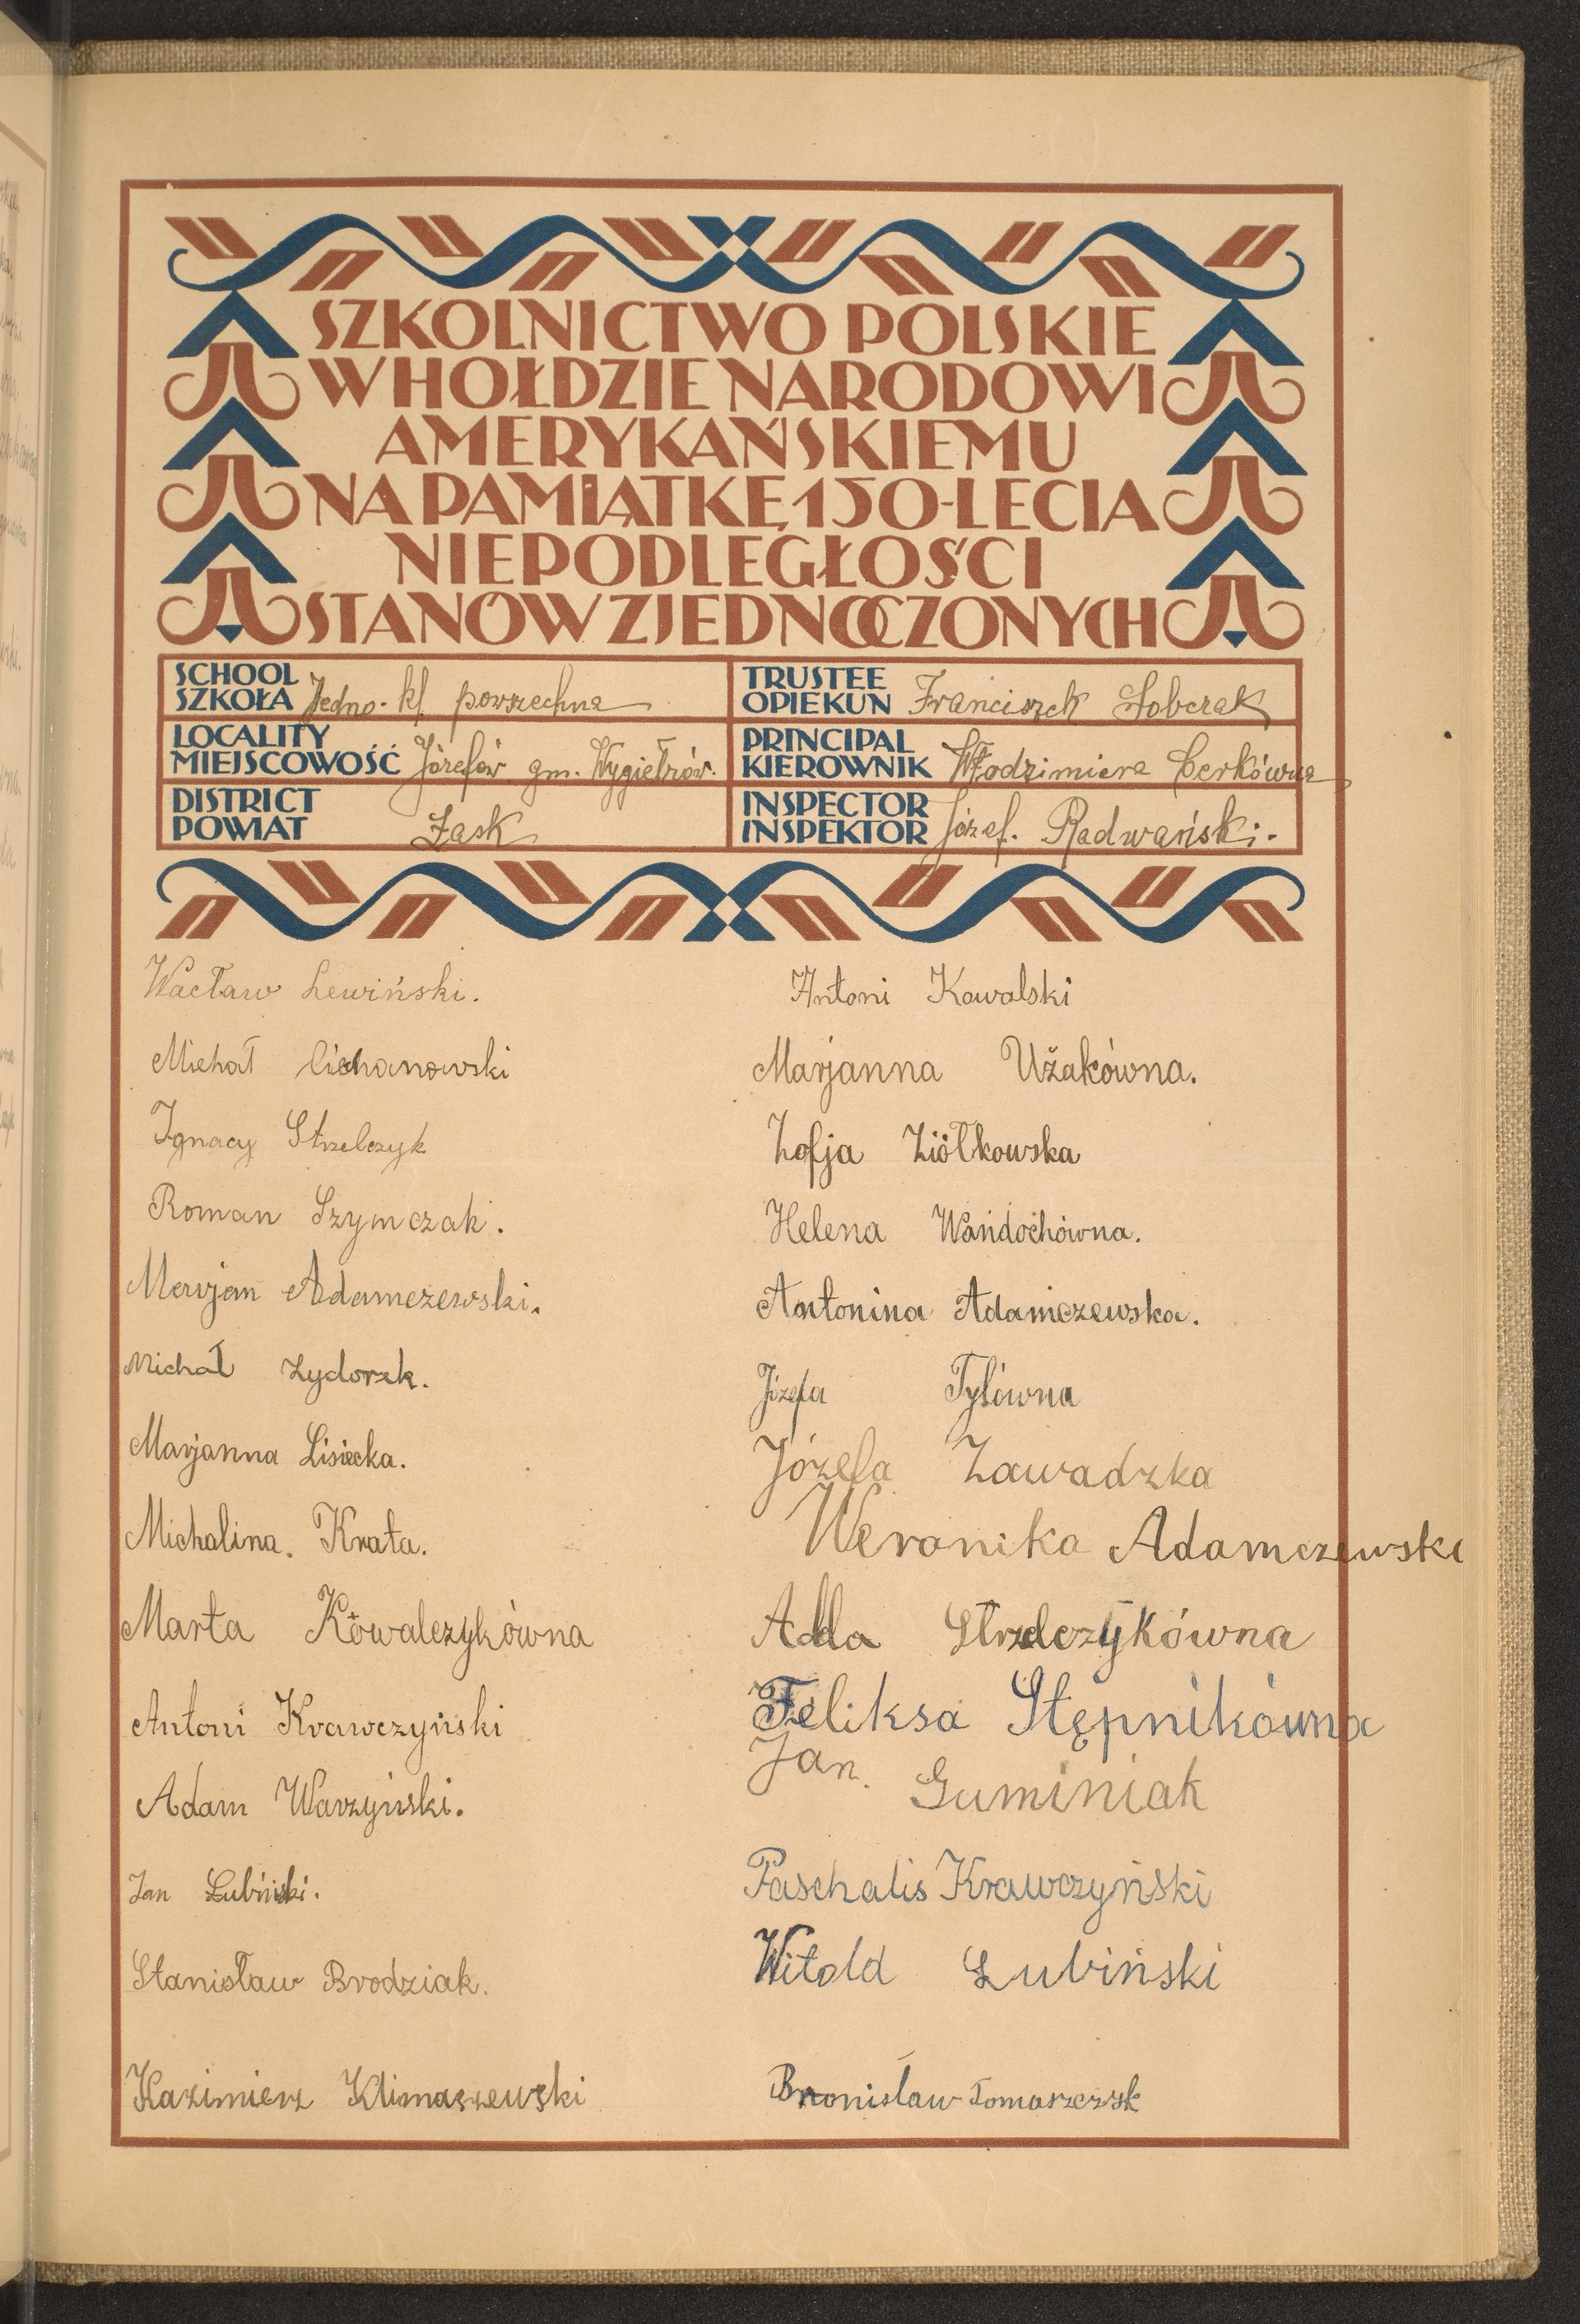 SZKOLNICTWO POLSKIE
W HOŁDZIE NARODOWI
AMERYKAŃSKIEMU
NA PAMIĄTKĘ 150-LECIA
NIEPODLEGŁOŚCI
STANÓW ZJEDNOCZONYCH
SCHOOL
SZKOŁA Jedno-kl. powszechna
TRUSTEE
OPIEKUN Franciszek Sobczak
LOCALITY
MIEJSCOWOŚĆ Józefów gm. Wygiełzów.
PRINCIPAL
KIEROWNIK Włodzimiera Cerkówna
DISTRICT
POWIAT Łask
INSPECTOR
INSPEKTOR Józef. Radwański.
Wacław Lewiński.
Michał Ciechanowski
Ignacy Strzelczyk
Roman Szymczak.
Marjan Adamczewski.
Michał Zydorek.
Marjanna Lisiecka.
Michalina. Krata.
Marta Kowalczykówna
Antoni Krawczyński
Adam Warzyński.
Jan Łubiński.
Stanisław Brodziak.
Kazimierz Klimaszewski
Antoni Kowalski
Marjanna Użakówna.
Zofja Ziółkowska
Helena Wandochówna.
Antonina Adamczewska.
Józefa Tylówna
Józefa Zawadzka
Weronika Adamczewska
Adla Strzelczykówna
Feliksa Stępnikówna
Jan. Guminiak
Paschalis Krawczyński
Witold Łubiński
Bronisław Tomaszczyk